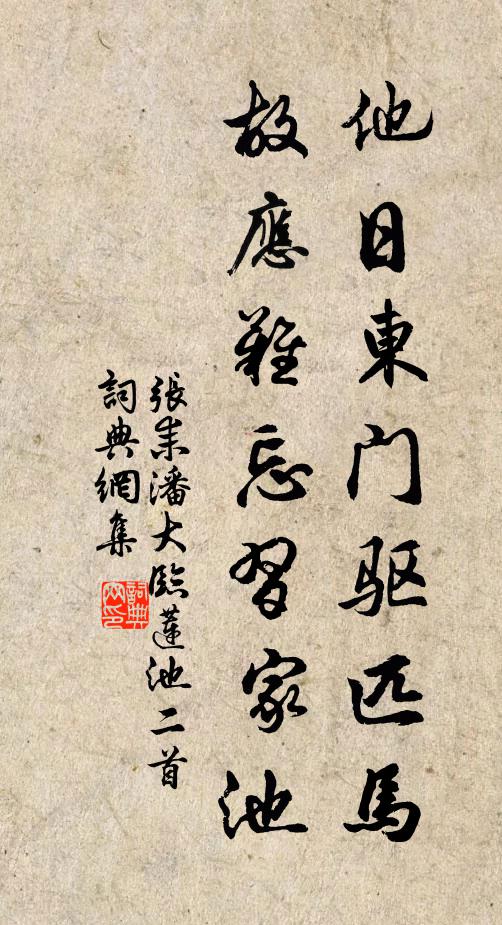 他日東門驱匹馬
故應難忘習家池
張耒潘大臨蓮池二首
詞典網集
詞典网印